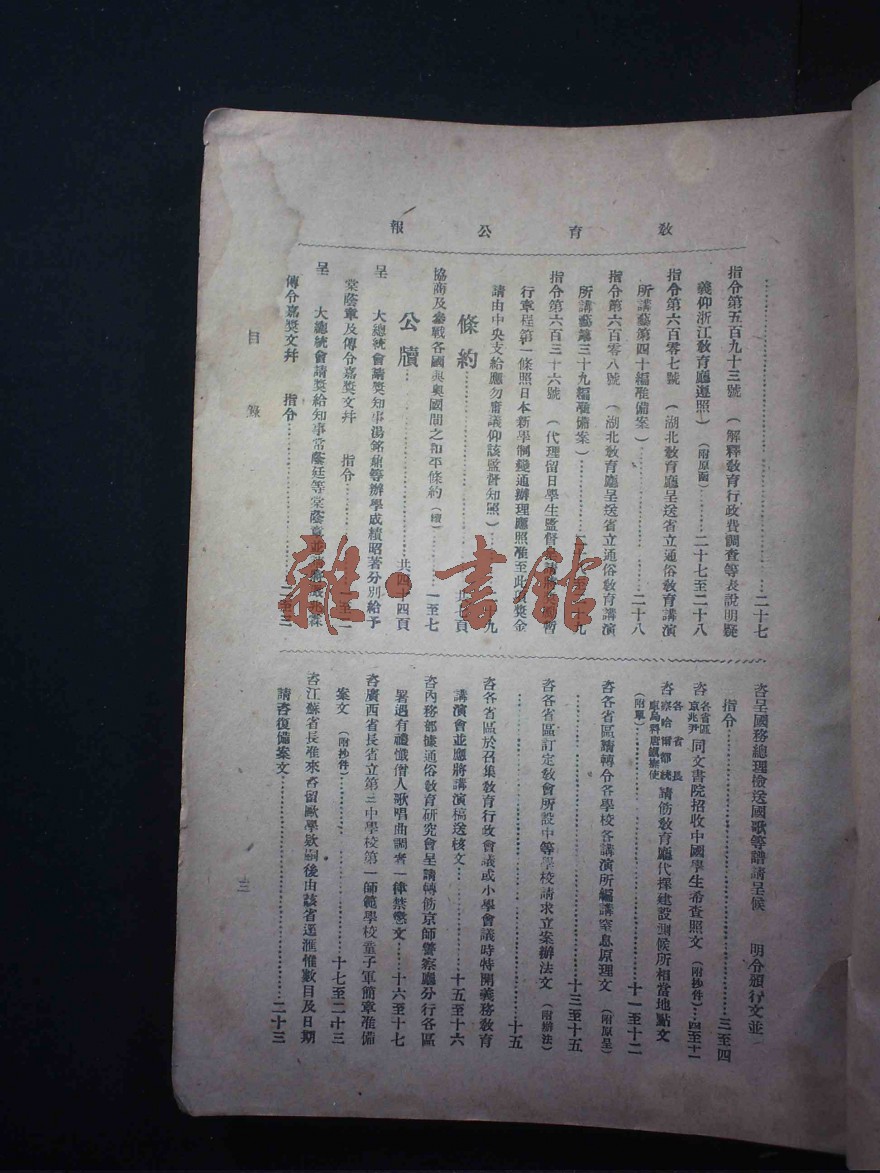 教育公報
……二十七
指令第五百九十三號　(解釋教育行政費調查等表說明疑
義仰浙江教育廳遵照)　(附原函)……二十七至二十八
指令第六百零七號　(湖北教育廳呈送省立通俗教育講演
所講藝第四十編准備案)……二十八
指令第六百零八號　(湖北教育廳呈送省立通俗教育講演
所講藝第三十九編准備案)……十九
指令第六百三十六號　(代理留日學生監督
行章程第一條照日本新學制變通辦理應照准至此項獎金
請由中央支給應勿庸議仰該監督知照)……九
條約……頁
協商及參戰各國與奧國間之和平條約(續)……一至七
公牘……共四十四頁
呈　大總統會請獎知事湯銘鼐等辦學成績昭著分別給予
棠蔭章及傳令嘉獎文幷　指令……至二
呈　大總統會請獎給知事常蔭廷等棠蔭章並
傳令嘉獎文幷　指令……二至三
咨呈國務總理檢送國歌等譜請呈候　明令頒行文並
指令……三至四
咨各省區京兆尹同文書院招收中國學生希查照文　(附抄件)…四至十一
咨各省長察哈爾都統庫烏科唐鎮撫使請飭教育廳代擇建設測候所相當地點文
(附單)……十一至十二
咨各省區請轉令各學校各講演所編講窒息原理文　(附原呈)
……十三至十五
咨各省區訂定教會所設中等學校請求立案辦法文　(附辦法)
……十五
咨各省區於召集教育行政會議或小學會議時特開義務教育
講演會並應將講演稿送核文……十五至十六
咨內務部據通俗教育研究會呈請轉飭京師警察廳分行各區
署遇有禮懺僧人歌唱曲調者一律禁懲文……十六至十七
咨廣西省長省立第三中學校第一師範學校童子軍簡章准備
案文　(附抄件)……十七至二十三
咨江蘇省長准來咨留歐學欵嗣後由該省逕滙惟數目及日期
請咨復備案文……二十三
目錄　三
雜·書館